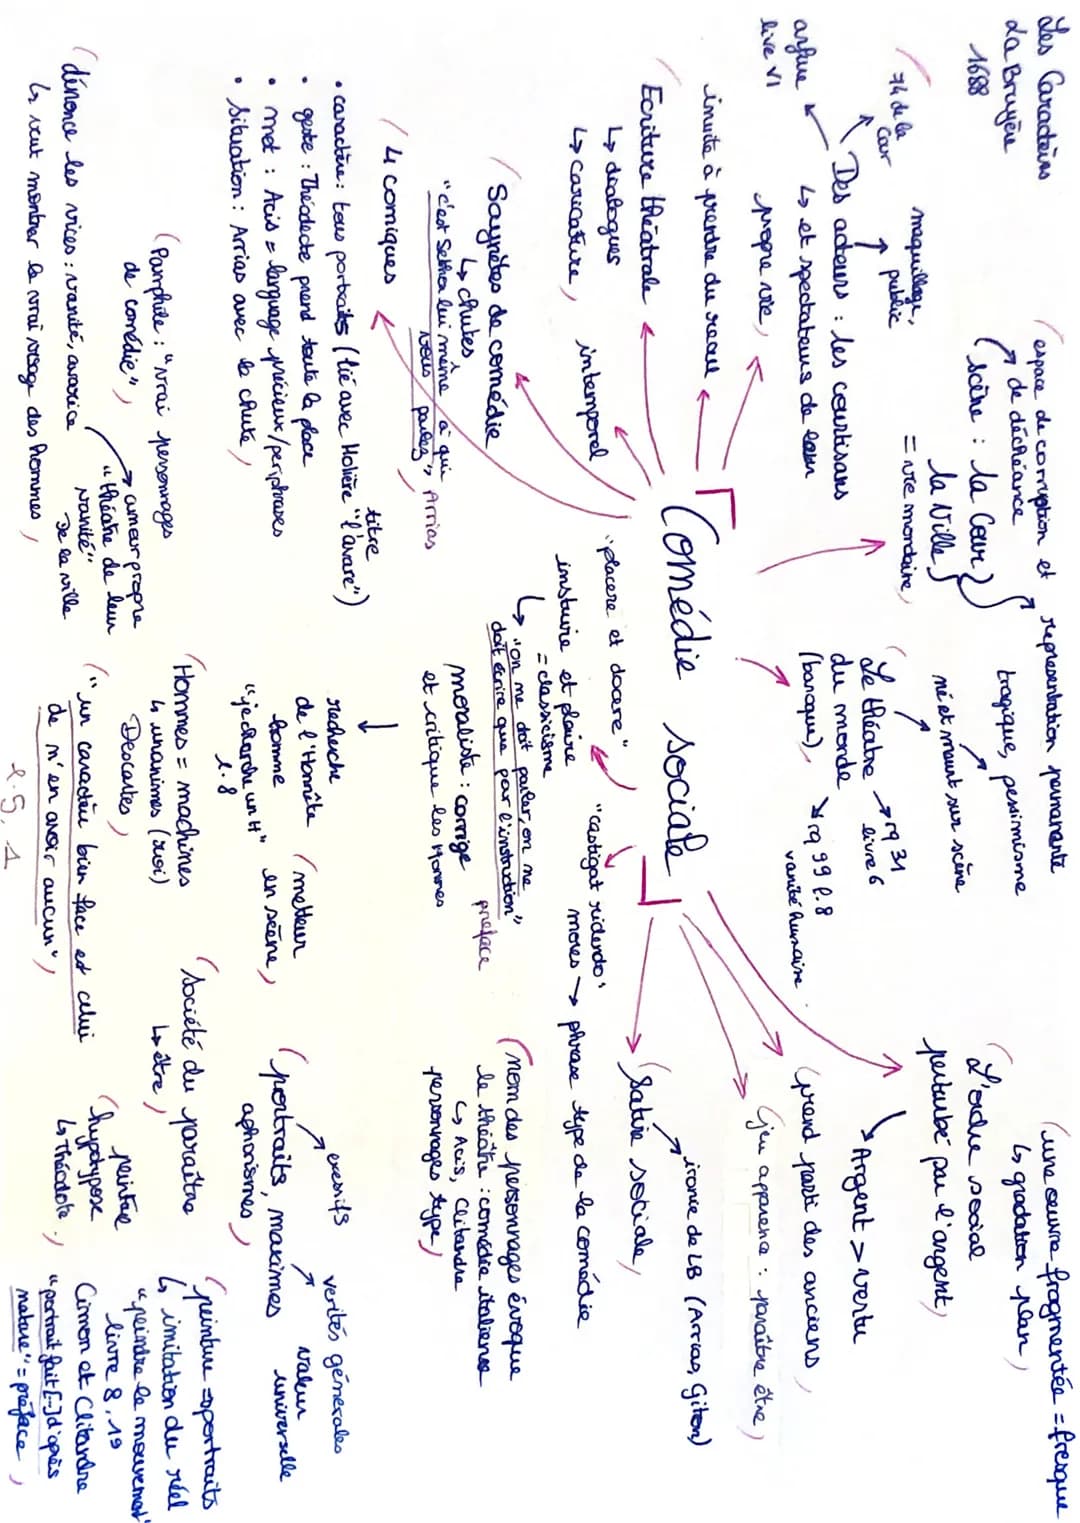 Les Caractères
La Bruyère
1688
74 de la
Cour
maquillage,
public
Des acteurs : les courtisans
↳ et spectateurs de leur
propre vie
live VI
invite à prendre du recul
Ecriture théâtrale
↳ dialogues
↳ caricature
intemporel
Saynètes de comédie
↳ chutes
"c'est Sethon lui même à qui
vous parlez" Arrias
4 comiques
• caractère : tous portraits (lié avec Molière "l'avare")
titre
• geste : Théodecte prend toute la place
• mot : Acis = language précieux/periphrases
• situation : Arrias avec la chute
Pamphile : "vrai personnages
de comédie"
dénonce les vices : vanité, avarice
→ amour propre
"théâtre de leur
vanité"
De la ville
↳ veut montrer le vrai visage des hommes
espace de corruption et
de déchéance
Scène : la Cour
la Ville
= vie mondaine
representation permanente
tragique, pessimisme
né et meurt sur scène
Le théâtre
du monde
(baroque)
→ rq 31
livre 6
rq 99 l.8
vanité humaine
Comédie sociale
"placere et docere"
instruire et plaire
= classicisme
↳ "on ne doit parler, on ne
doit écrire que pour l'instruction"
preface
"castigat ridendo
mores" → phrase type de la comédie
moraliste : corrige
et critique les Hommes
recherche
de l'Honnête
homme
l.8
metteur
en scène
Hommes = machines
↳ inanimés (roi)
Descartes
"un caractère bien face est celui
de n'en avoir aucun"
l.5, 1
une œuvre fragmentée = fresque
↳ gradation plan
L'ordre social
perturbé par l'argent
↳ Argent > vertu
prend parti des anciens
jeu apparence : paraître être
Satire sociale
→ ironie de LB (Arrias, Giton)
nom des personnages évoque
le théâtre : comédie italienne
↳ Acis, Clitandre
personnages type
portraits, maximes
aphorismes
verités génerales
valeur
universelle
société du paraître
↳ être
peinture
hypotypose
↳ Théodote
peinture → portraits
↳ imitation du réel
"peindre le mouvement"
livre 8, 19
Cimon et Clitandre
"portrait fait [...] d'après
nature" = préface